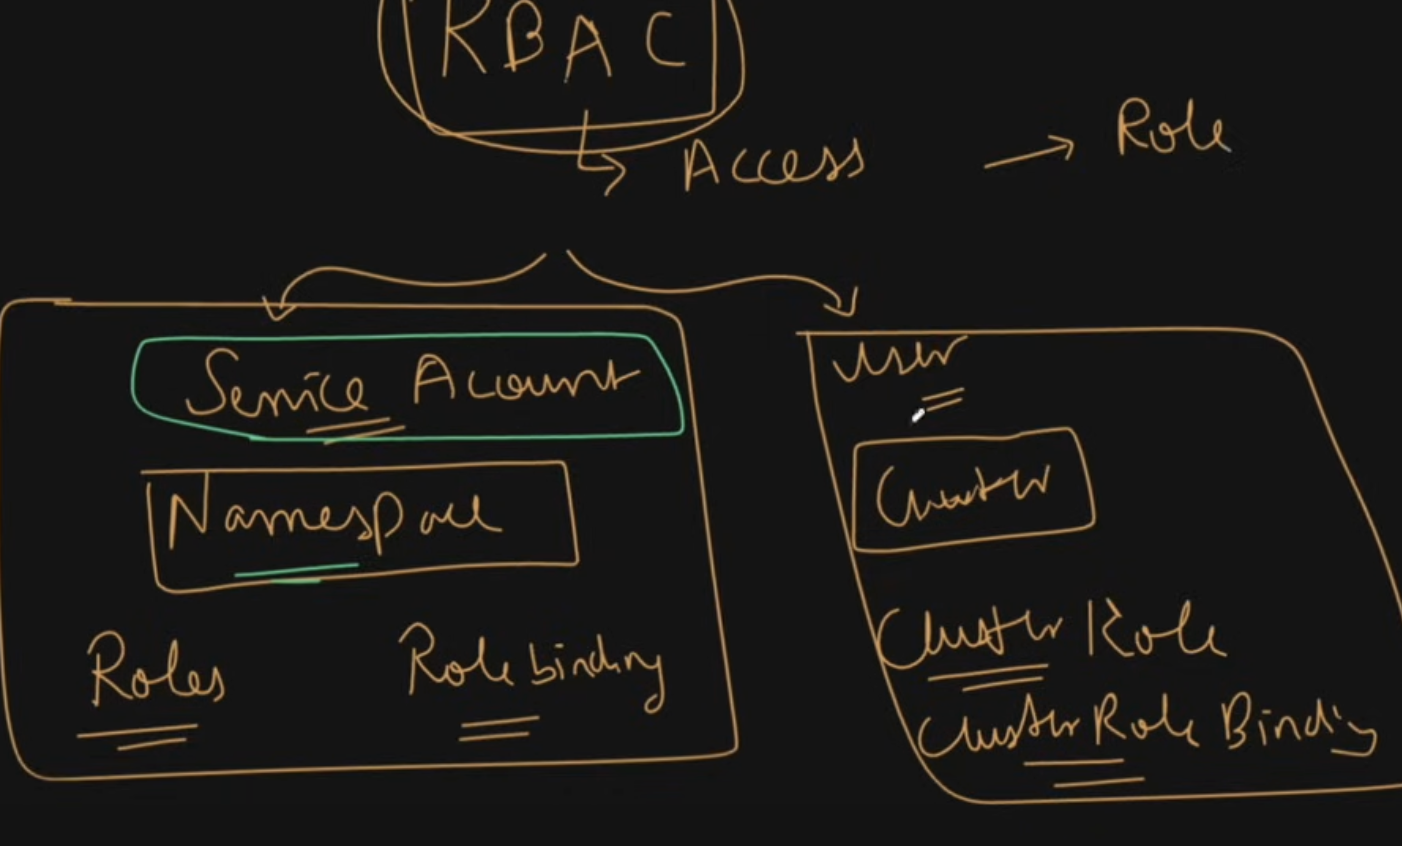 RBAC
Access
Role
Service Account
Namespace
Roles
Role binding
User
Cluster
Cluster Role
Cluster Role Binding